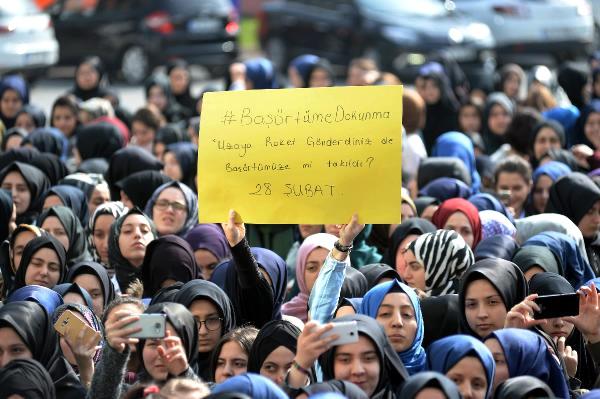 #BaşörtümeDokunma
"Uzaya Roket Gönderdiniz de
Başörtümüze mi takıldı?
28 ŞUBAT.